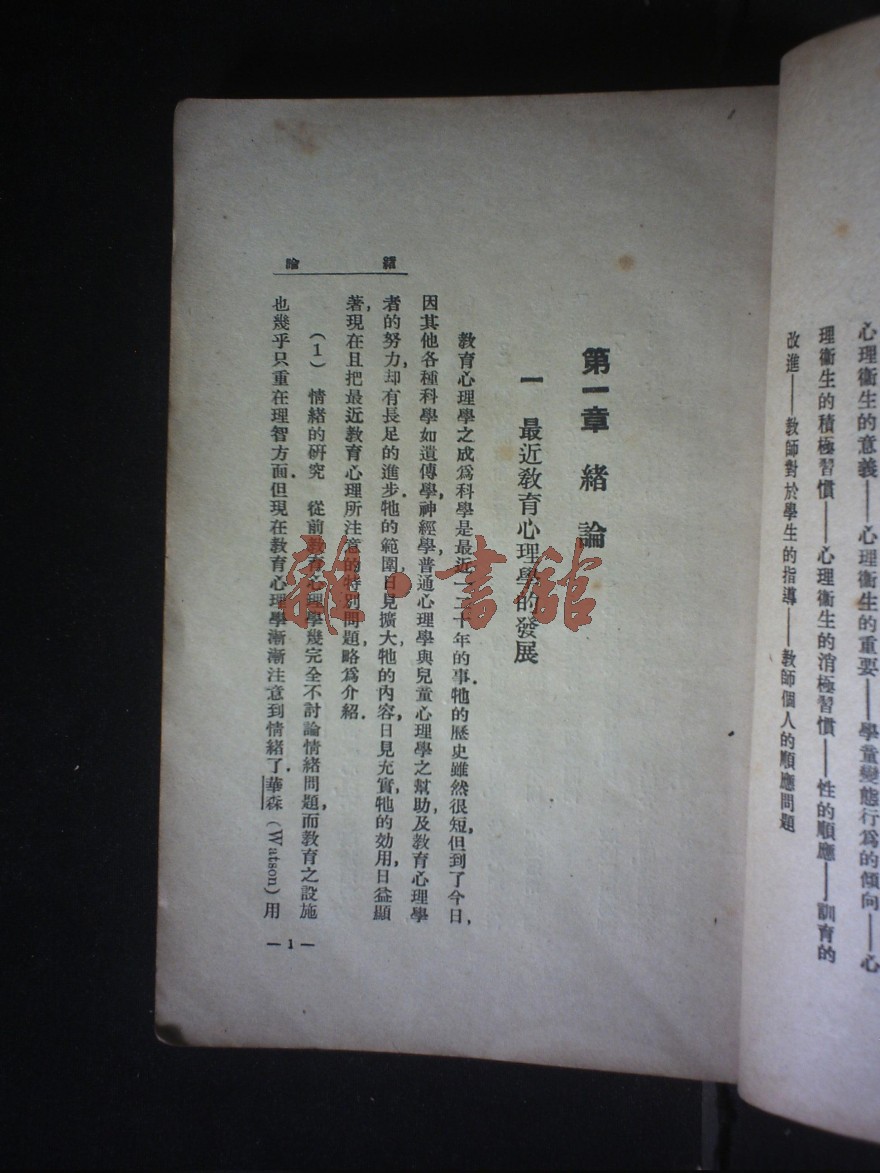 心理衞生的意義——心理衞生的重要——學童變態行爲的傾向——心
理衞生的積極習慣——心理衞生的消極習慣——性的順應——訓育的
改進——教師對於學生的指導——教師個人的順應問題
第一章 緒論
一 最近教育心理學的發展
教育心理學之成爲科學是最近一二十年的事．牠的歷史雖然很短，但到了今日，
因其他各種科學如遺傳學，神經學，普通心理學與兒童心理學之幫助，及教育心理學
者的努力，却有長足的進步．牠的範圍，日見擴大，牠的內容，日見充實，牠的効用，日益顯
著，現在且把最近教育心理所注意的特別問題，略爲介紹．
(1) 情緒的研究 從前教育心理學幾完全不討論情緒問題，而教育之設施
也幾乎只重在理智方面．但現在教育心理學漸漸注意到情緒了．華森 (Watson) 用
緒論
— 1 —
雜·書館